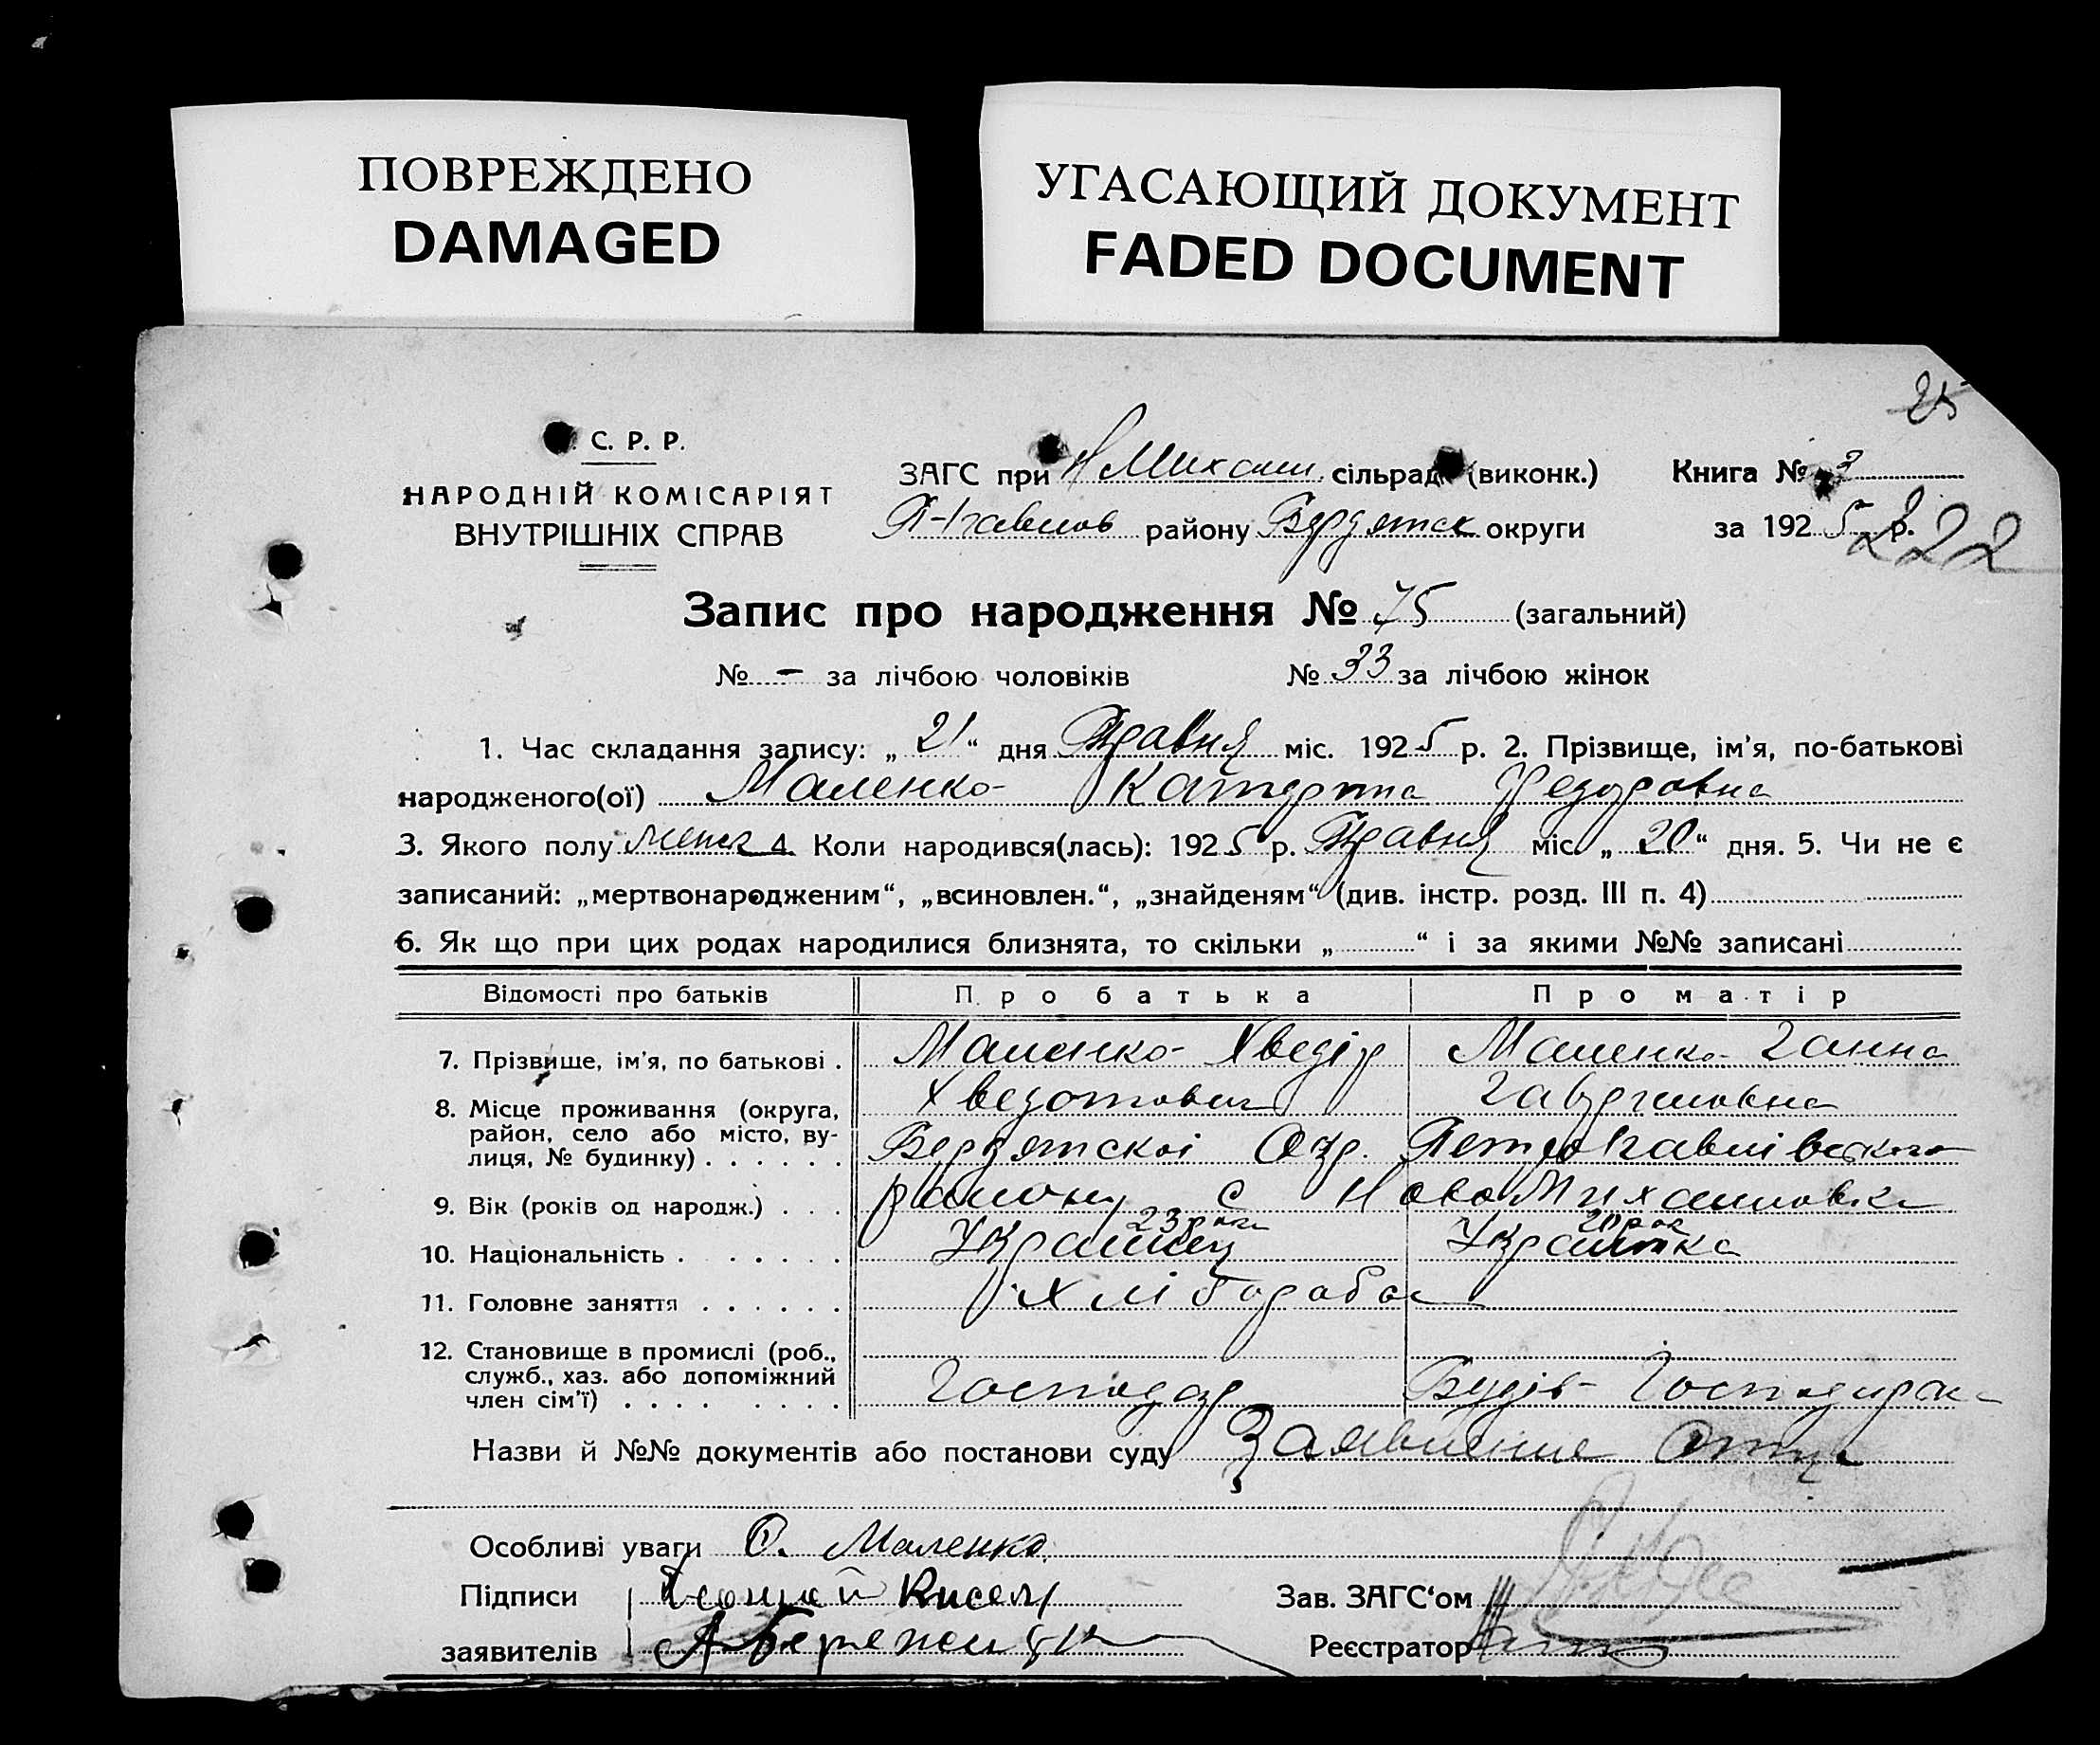 ПОВРЕЖДЕНО
DAMAGED
УГАСАЮЩИЙ ДОКУМЕНТ
FADED DOCUMENT
25
С. Р. Р.
НАРОДНІЙ КОМІСАРІЯТ
ВНУТРІШНІХ СПРАВ
ЗАГС при Н Михаил. сільрад (виконк.)
П-Павлов району Бердянск округи
Книга №
за 1925 р.
222
Запис про народження № 75 (загальний)
№ - за лічбою чоловіків № 33 за лічбою жінок
1. Час складання запису: „21“ дня Травня міс. 1925 р. 2. Прізвище, ім'я, по-батькові
народженого(ої) Маленко Катерина Федоровна
3. Якого полу женск 4. Коли народився(лась): 1925 р. Травня міс. „20“ дня. 5. Чи не є
записаний: „мертвонародженим“, „всиновлен.“, „знайденям“ (див. інстр. розд. III п. 4)
6. Як що при цих родах народилися близнята, то скільки „ “ і за якими №№ записані
Відомості про батьків Про батька Про матір
7. Прізвище, ім'я, по батькові . Маленко Хведір Маленко Ганна
8. Місце проживання (округа, Хведотович
район, село або місто, ву-
лиця, № будинку) . . . . . . Бердянскоі Окр. Петропавлівского
9. Вік (років од народж.) . . . району с Ново Михайловки
23 рок 20 рок
10. Національність . . . . . . Украинец Украинка
11. Головне заняття . . . . . . Хлібороб
12. Становище в промислі (роб.,
служб., хаз. або допоміжний
член сім'ї) . . . . . . . . Господар Господарка
Назви й №№ документів або постанови суду Заявление Отца
Особливі уваги Маленко
Підписи Кисель
заявителів
Зав. ЗАГС‘ом
Реєстратор